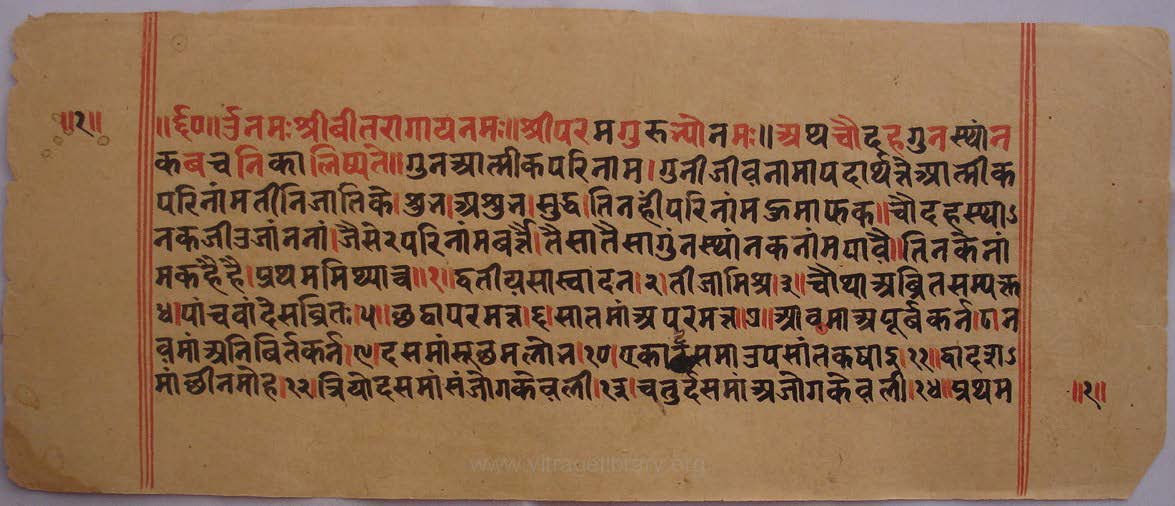 ॥१॥
॥र्द्द०॥र्उनमःश्रीबीतरागायनमः॥श्रीपरमगुरुभ्योनमः॥अथचौदहगुनस्थांन
कबचनिकालिष्यते॥गुनआत्मीकपरिनाम।गुनीजीवनामापदार्थतेआत्मीक
परिनांमतीनिजातिके।शुन।अशुन।सुद्ध।तिनहींपरिनांम चौदहस्था
नकजीउजांननां।जैसे२परिनांमबर्त्तै।तैसातैसागुंनस्थांनकनांमपावै॥तिनकेनां
मकहैहै।प्रथममिथ्यात्व॥१॥द्वतीयसास्वादन।२।तीजामिश्र।३॥चौथाअब्रितसम्यक्त
४।पांचवांदेसब्रितः।५।छठापरमत्त।६।सातमांअपरमत्त।७॥आठमाअपूर्बकर्न।८।न
वमांअनिबिर्तकर्न।९।दसमांसूछमलोन।१०।एकादसमाउपसांतकषाइ।११॥द्वादशा
मांछीनमोह।१२।त्रियोदसमांसंजोगकेवली।१३।चतुर्दसमांअजोगकेवली।१४॥प्रथम
॥१॥
www.vitragelibrary.org